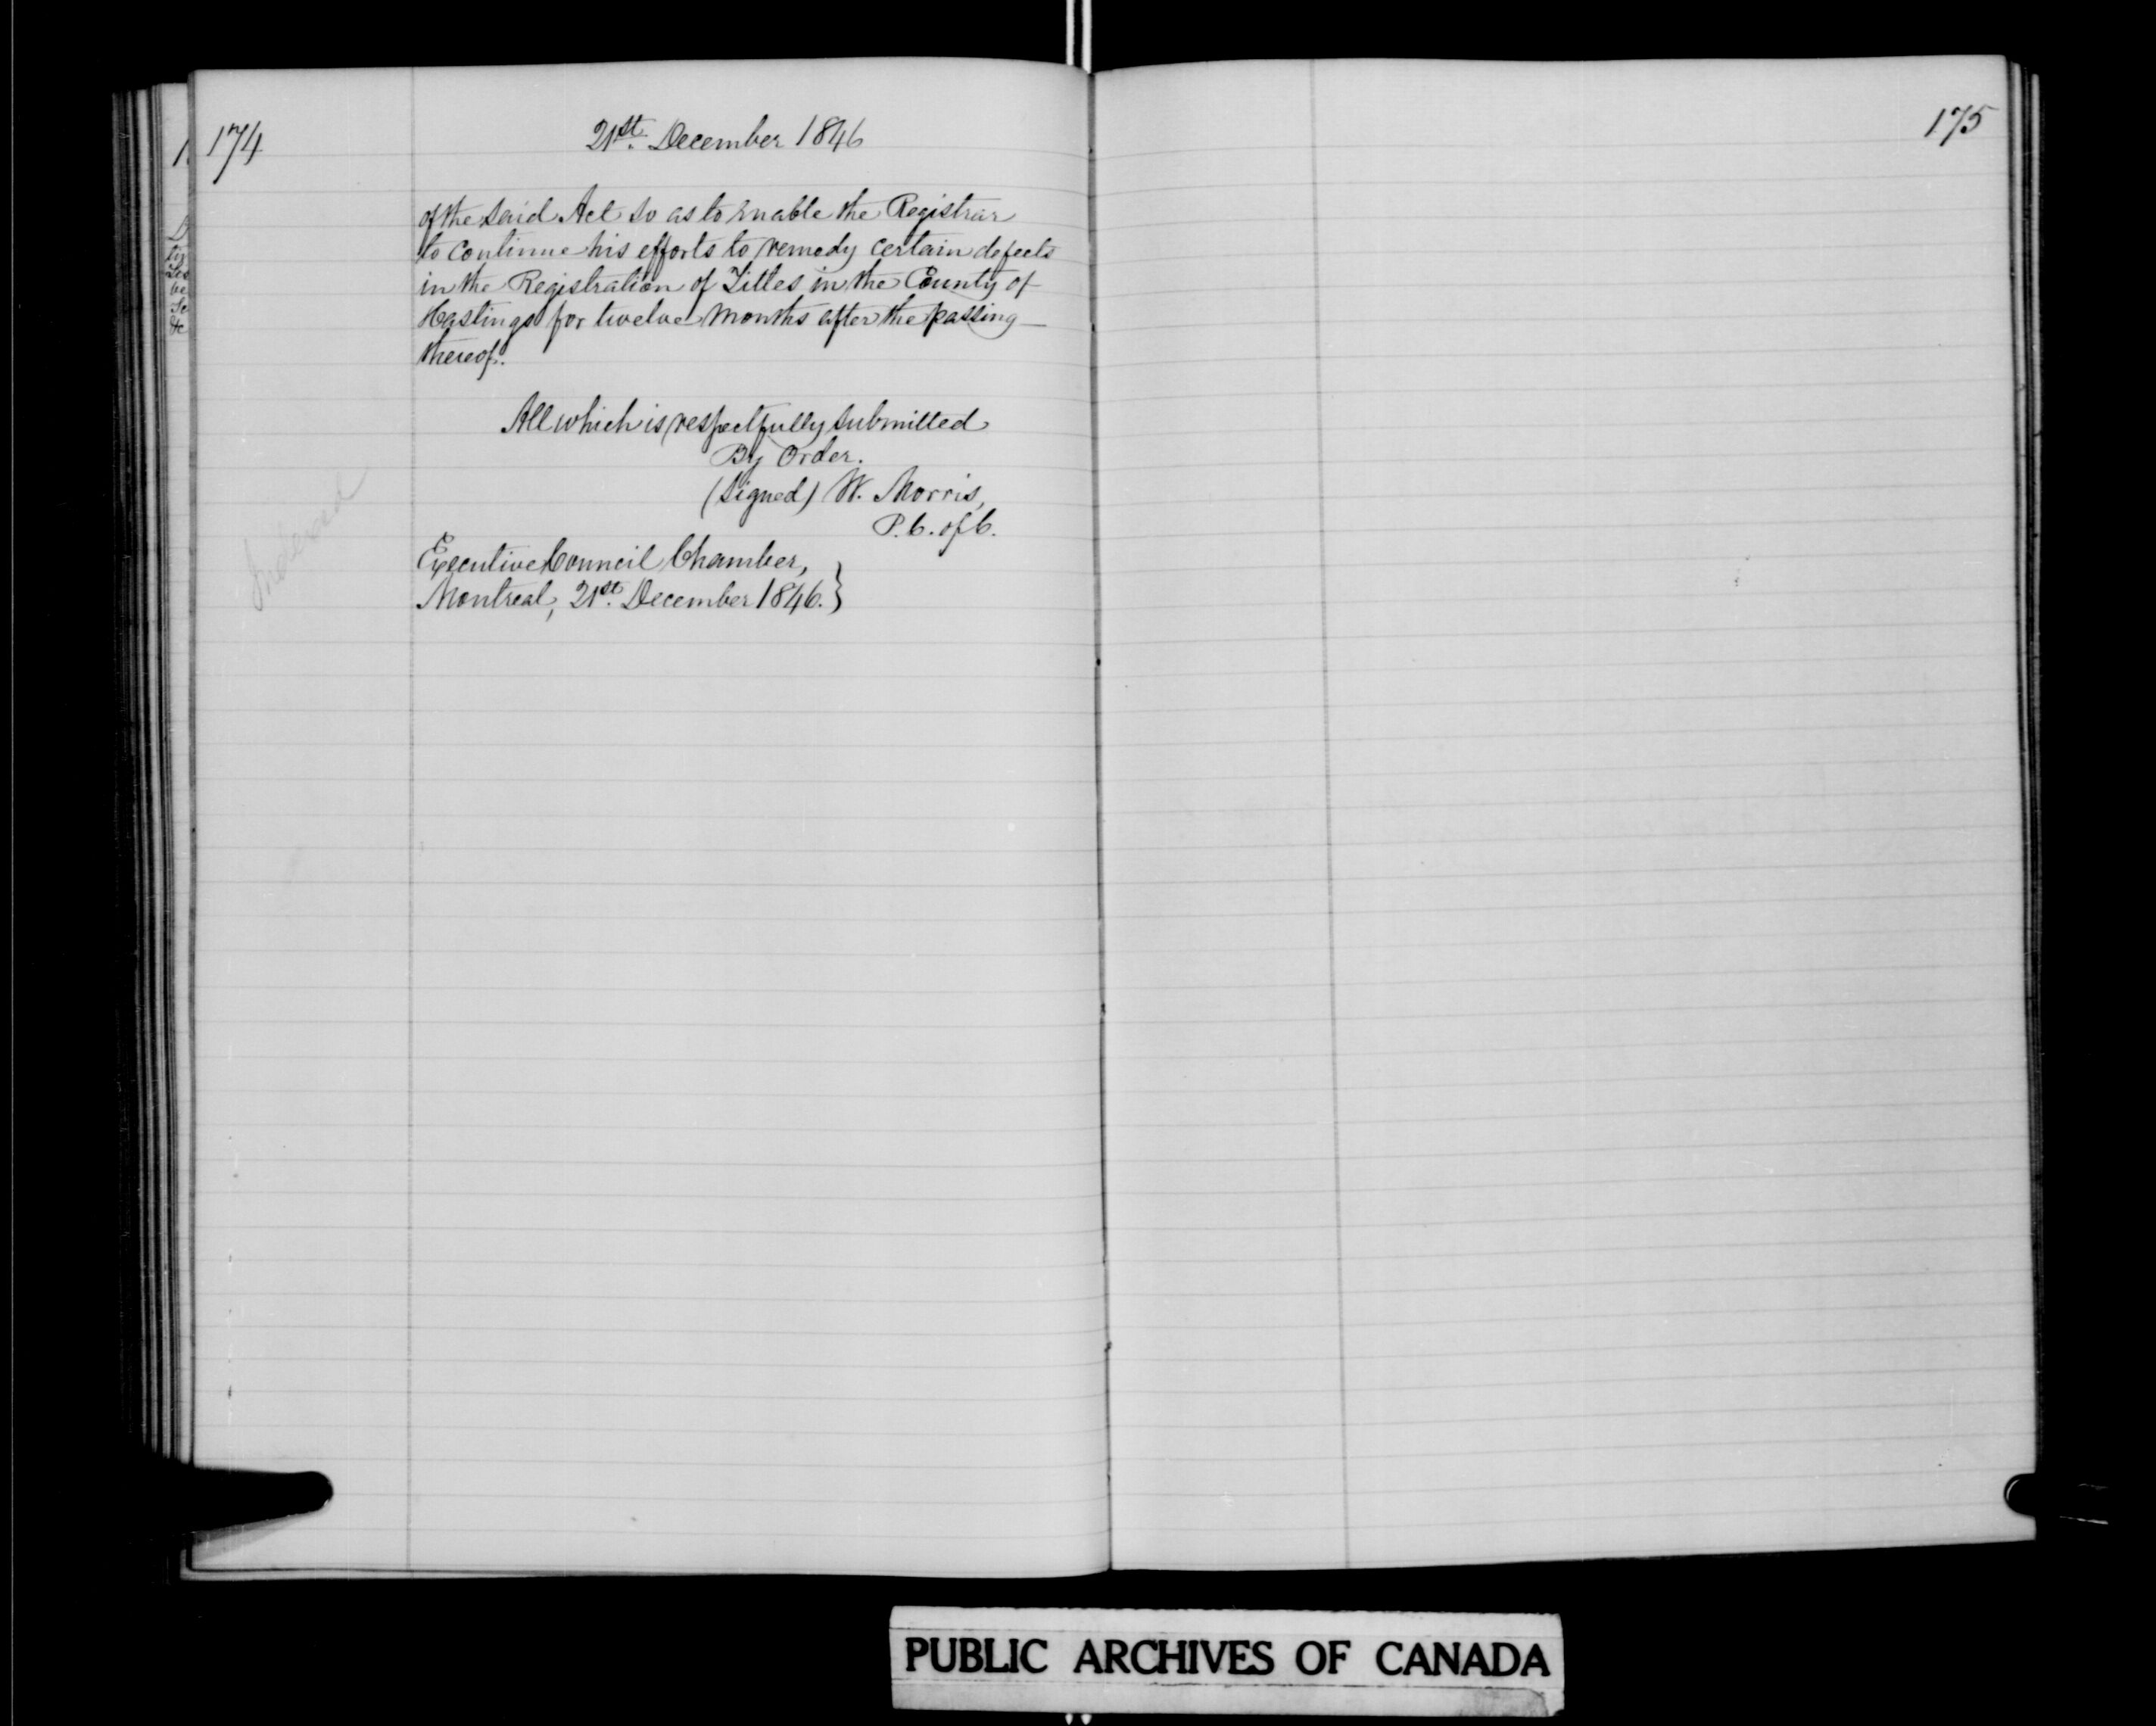 174
21st. December 1846
of the said Act so as to enable the Registrar
to continue his efforts to remedy certain defects
in the Registration of Titles in the County of
Hastings for twelve months after the passing
thereof.
All which is respectfully submitted
By Order.
(Signed) W. Morris,
P. C. of C.
Executive Council Chamber,
Montreal, 21st. December 1846. }
Indexed
175
PUBLIC ARCHIVES OF CANADA